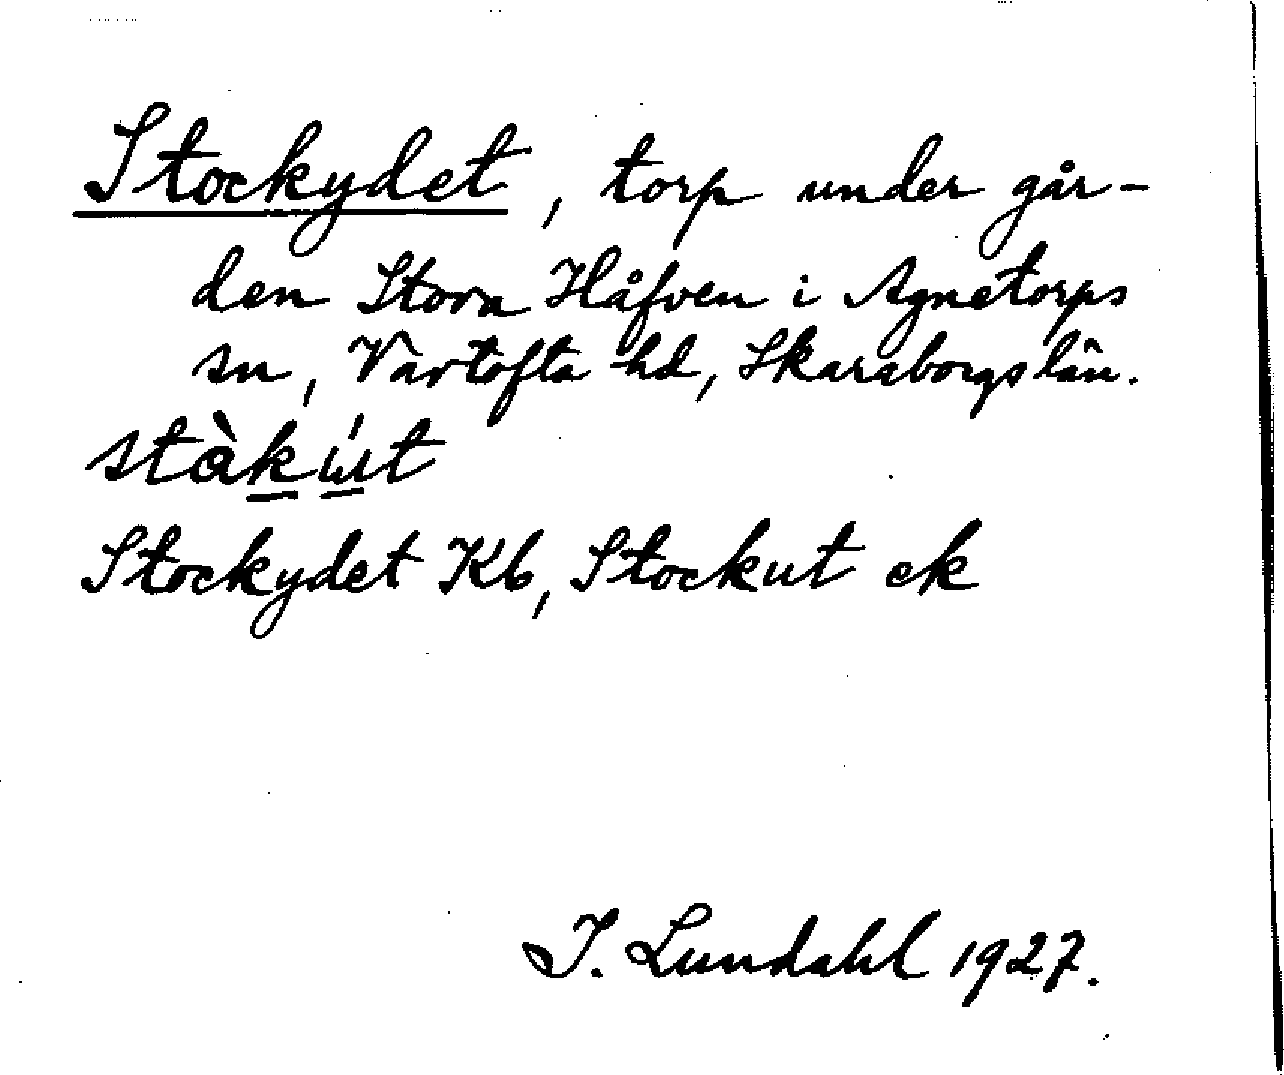 Stockydet, torp under går-
den Stora Håfven i Agnetorps
sn, Vartofta hd, Skaraborgs län.
Stockydet Kb, Stockut ek
I. Lundahl 1927.